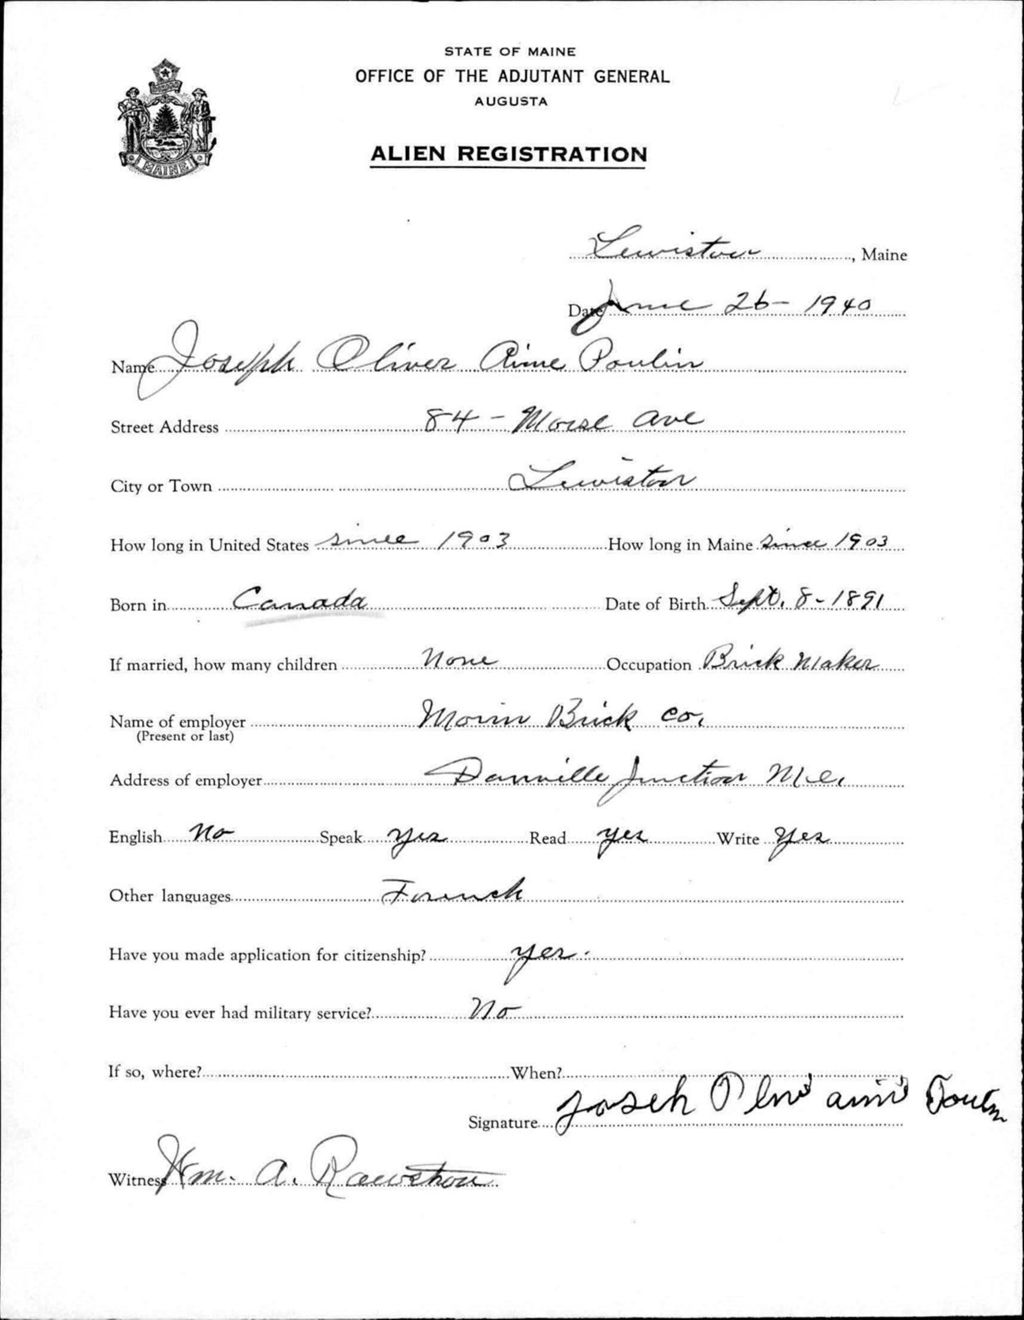 STATE OF MAINE
OFFICE OF THE ADJUTANT GENERAL
AUGUSTA
ALIEN REGISTRATION
MAINE
Lewiston, Maine
Date June 26 - 1940
Name Joseph Oliver Aime Poulin
Street Address 84 - Morse Ave
City or Town Lewiston
How long in United States since 1903 How long in Maine Since 1903
Born in Canada Date of Birth Sept. 8 - 1891
If married, how many children None Occupation Brick Maker
Name of employer Morin Brick Co.
(Present or last)
Address of employer Danville Junction Me.
English No Speak yes Read yes Write Yes
Other languages French
Have you made application for citizenship? yes.
Have you ever had military service? No
If so, where? When?
Signature Joseh
Witness Wm. A.